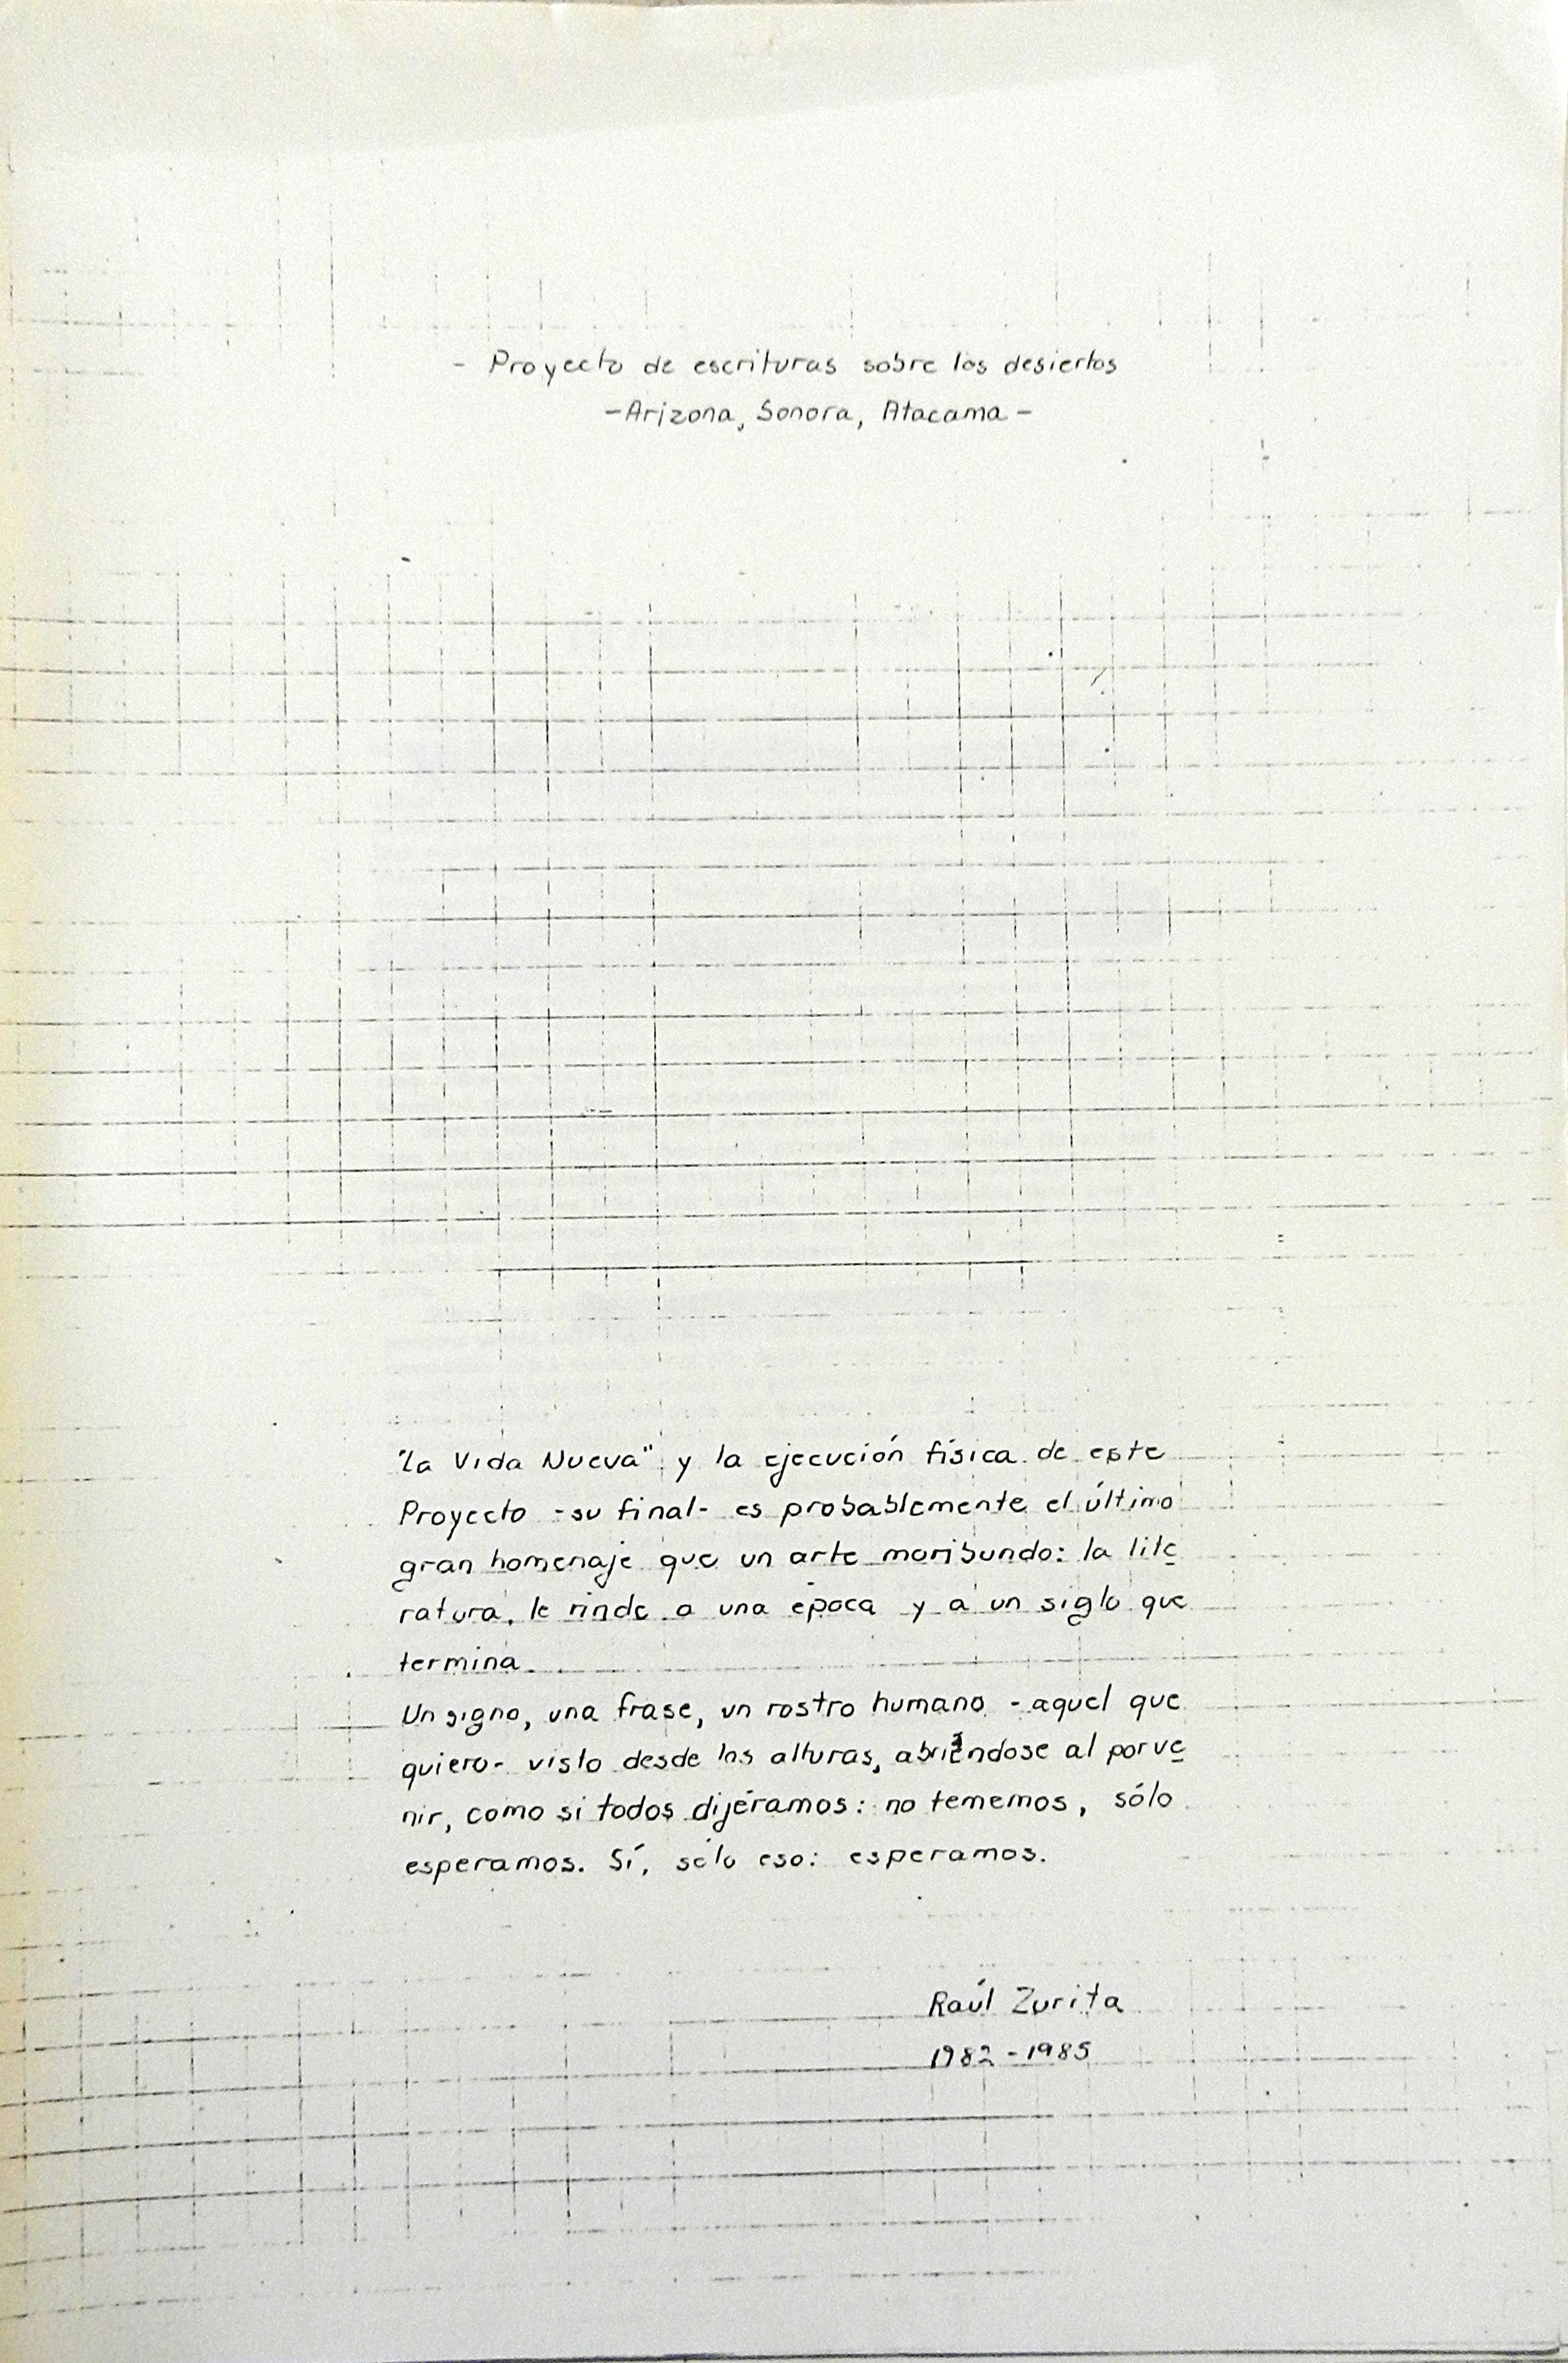 - Proyecto de escrituras sobre los desiertos
-Arizona, Sonora, Atacama-
"La Vida Nueva" y la ejecución física de este
Proyecto -su final- es probablemente el último
gran homenaje que un arte moribundo: la lite
ratura, le rinde a una época y a un siglo que
termina.
Un signo, una frase, un rostro humano -aquel que
quiero- visto desde las alturas, abriéndose al porve
nir, como si todos dijéramos: no tememos, sólo
esperamos. Sí, sólo eso: esperamos.
Raúl Zurita
1982-1985